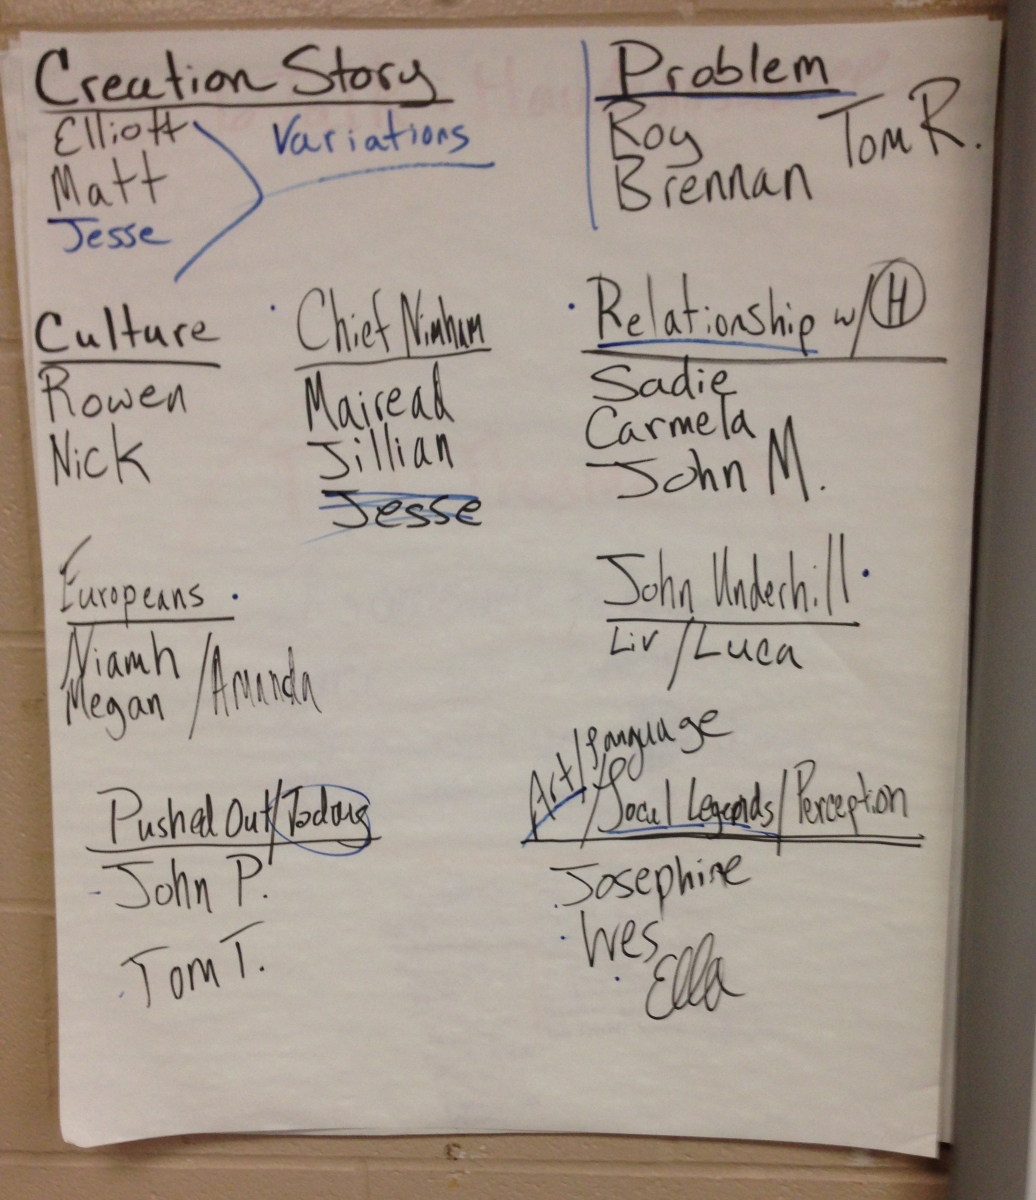 Creation Story
Elliott
Matt
Jesse
Variations
Problem
Roy
Brennan
Tom R.
Culture
Rowen
Nick
Chief Nimham
Mairead
Jillian
Jesse
Relationship w/ H
Sadie
Carmela
John M.
Europeans
Niamh
Megan / Amanda
John Underhill
Liv / Luca
Pushed Out/Today
John P.
Tom T.
Art/Language
/Local Legends/Perception
Josephine
Wes
Ella